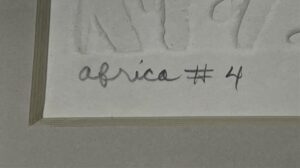 africa # 4